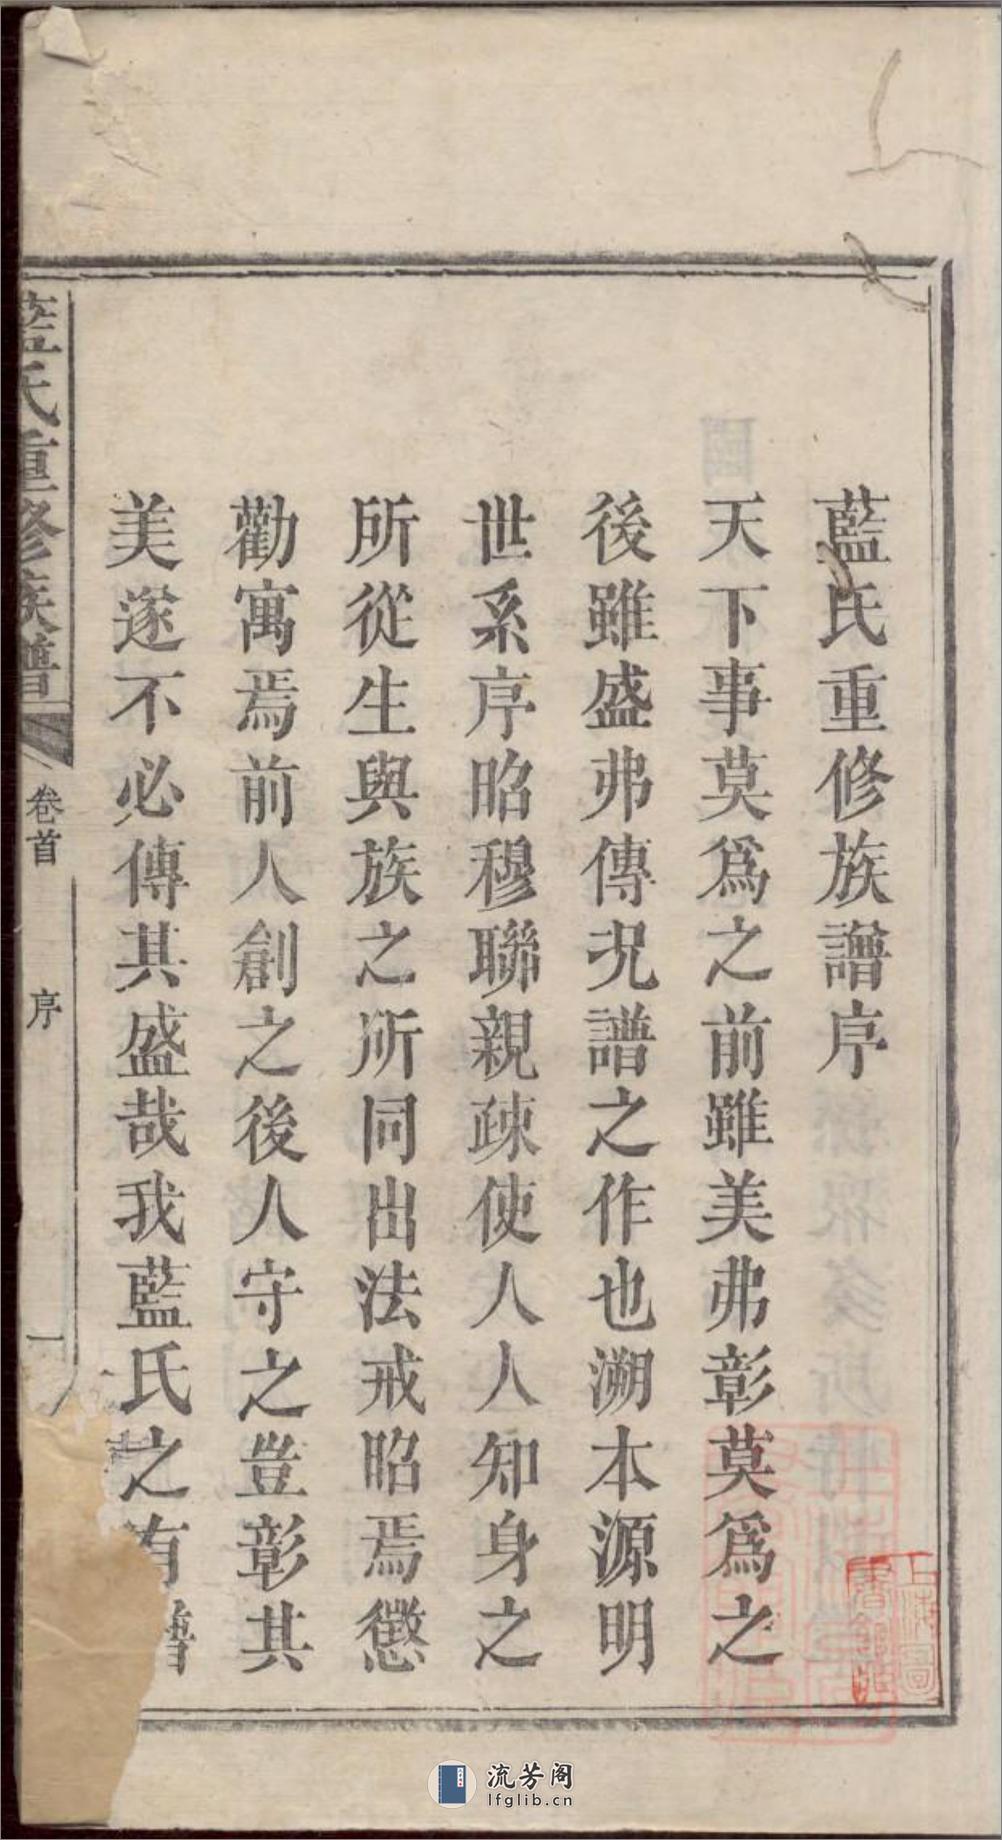 藍氏重修族譜序
天下事莫爲之前雖美弗彰莫爲之
後雖盛弗傳况譜之作也溯本源明
世系序昭穆聯親疎使人人知身之
所從生與族之所同出法戒昭焉懲
勸寓焉前人創之後人守之豈彰其
美遂不必傳其盛哉我藍氏之有譜
藍氏重修族譜
卷首
序
一
上海圖書館
流芳阁
lfglib.cn